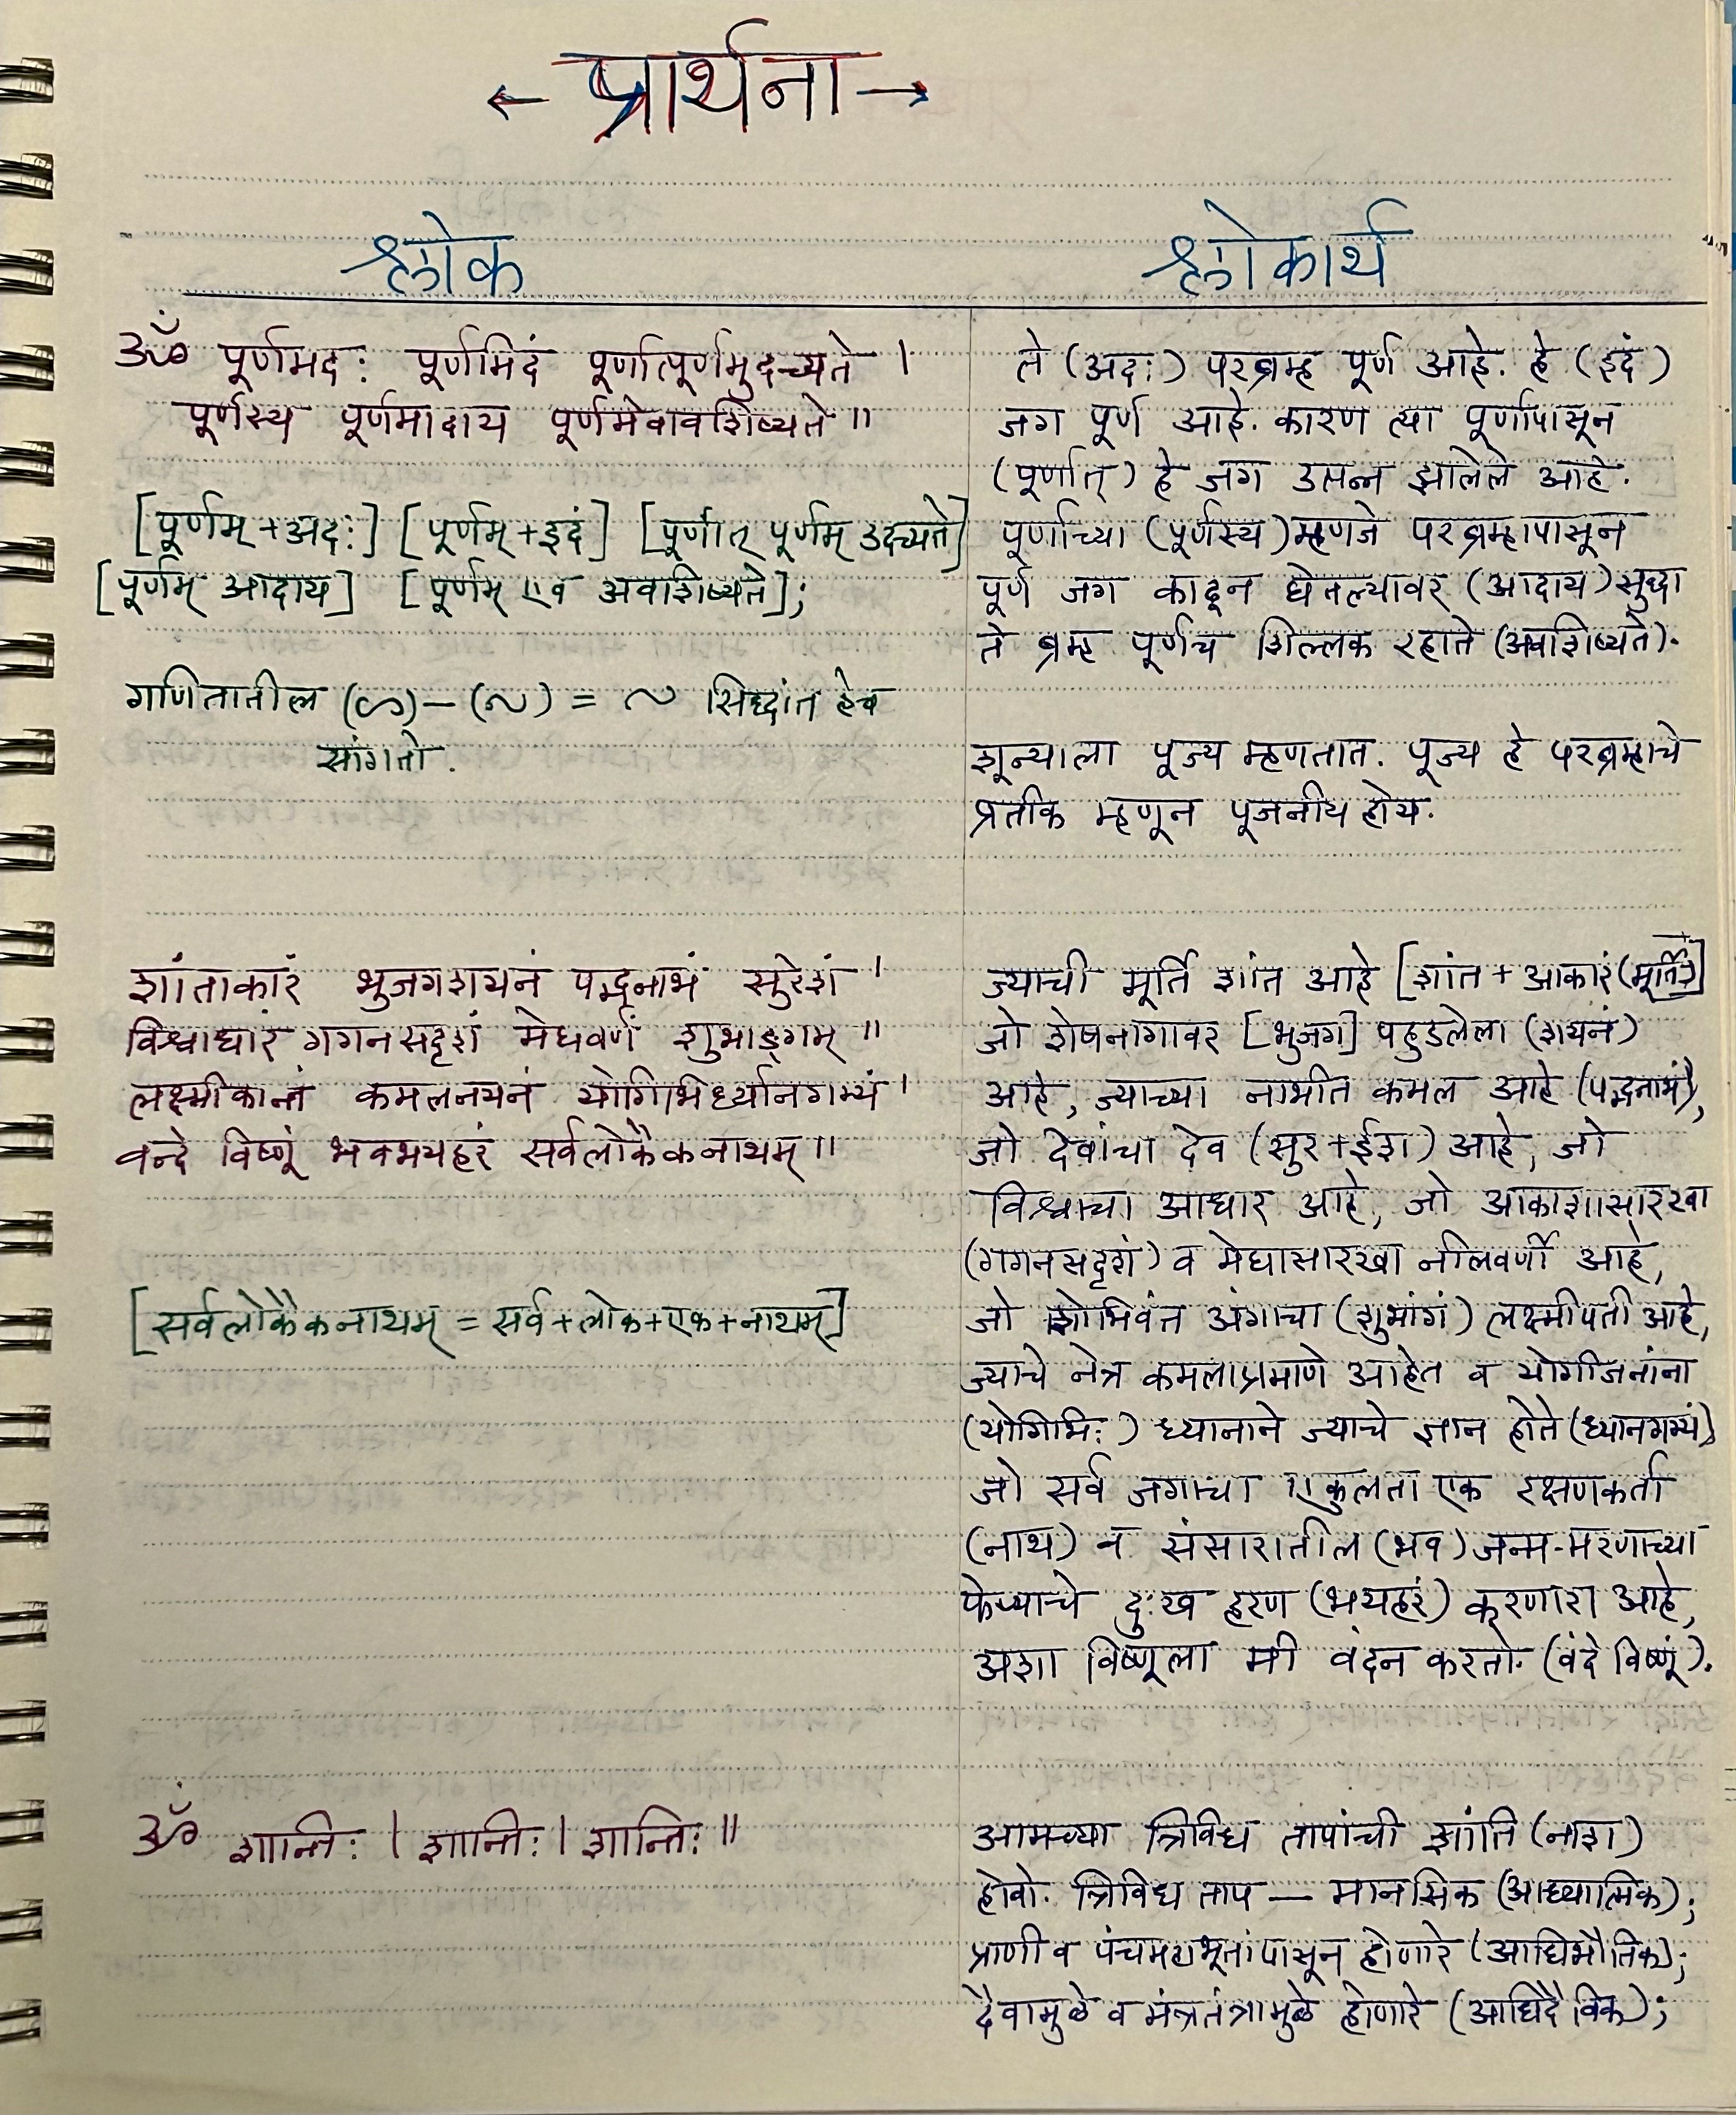 ← प्रार्थना →
श्लोक
ॐ पूर्णमदः पूर्णमिदं पूर्णात्पूर्णमुदच्यते ।
पूर्णस्य पूर्णमादाय पूर्णमेवावशिष्यते ॥
[पूर्णम् + अदः] [पूर्णम् + इदं] [पूर्णात् पूर्णम् उदच्यते]
[पूर्णम् आदाय] [पूर्णम् एव अवाशिष्यते];
गणितातील (∽) – (∽) = ∽ सिद्धांत हेच
सांगतो.
शांताकारं भुजगशयनं पद्मनाभं सुरेशं ।
विश्वाधारं गगनसदृशं मेघवर्णं शुभाङ्गम् ॥
लक्ष्मीकान्तं कमलनयनं योगिभिर्ध्यानगम्यं ।
वन्दे विष्णूं भवभयहरं सर्वलोकैकनाथम् ॥
[सर्वलोकैकनाथम् = सर्व + लोक + एक + नाथम्]
ॐ शान्तिः । शान्तिः । शान्तिः ॥
श्लोकार्थ
ते (अदः) परब्रम्ह पूर्ण आहे. हे (इदं)
जग पूर्ण आहे. कारण त्या पूर्णापासून
(पूर्णात्) हे जग उत्पन्न झालेले आहे.
पूर्णाच्या (पूर्णस्य) म्हणजे परब्रम्हापासून
पूर्ण जग काढून घेतल्यावर (आदाय) सुद्धा
ते ब्रम्ह पूर्णच शिल्लक रहाते (अवशिष्यते).
शून्याला पूज्य म्हणतात. पूज्य हे परब्रम्हाचे
प्रतीक म्हणून पूजनीय होय.
ज्याची मूर्ति शांत आहे [शांत + आकारं (मूर्ति)]
जो शेषनागावर [भुजग] पहुडलेला (शयनं)
आहे, ज्याच्या नाभीत कमल आहे (पद्मनाभं),
जो देवांचा देव (सुर + ईश) आहे, जो
विश्वाचा आधार आहे, जो आकाशासारखा
(गगनसदृशं) व मेघासारखा नीलवर्णी आहे,
जो शोभिवंत अंगाचा (शुभांगं) लक्ष्मीपती आहे,
ज्याचे नेत्र कमलाप्रमाणे आहेत व योगीजनांना
(योगिभिः) ध्यानाने ज्याचे ज्ञान होते (ध्यानगम्यं)
जो सर्व जगाचा एकुलता एक रक्षणकर्ता
(नाथ) व संसारातील (भव) जन्म-मरणाच्या
फेऱ्याचे दुःख हरण (भयहरं) करणारा आहे,
अशा विष्णूला मी वंदन करतो. (वंदे विष्णूं).
आमच्या त्रिविध तापांची शांति (नाश)
होवो. त्रिविध ताप — मानसिक (आध्यात्मिक);
प्राणी व पंचमहाभूतांपासून होणारे (आधिभौतिक);
दैवामुळे व मंत्रतंत्रामुळे होणारे (आधिदैविक);